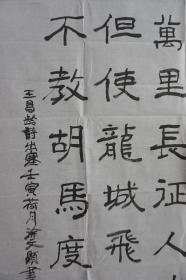 萬里長征人
但使龍城飛
不教胡馬度
王昌龄詩出塞壬寅荷月